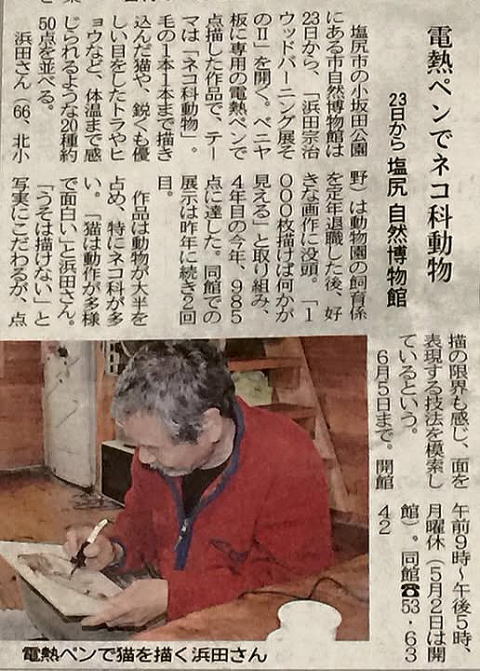 電熱ペンでネコ科動物
23日から 塩尻 自然博物館
塩尻市の小坂田公園
にある市自然博物館は
23日から、「浜田宗治
ウッドバーニング展そ
のⅡ」を開く。ベニヤ
板に専用の電熱ペンで
点描した作品で、テー
マは「ネコ科動物」。
毛の1本1本まで描き
込んだ猫や、鋭くも優
しい目をしたトラやヒ
ョウなど、体温まで感
じられるような20種約
50点を並べる。
浜田さん(66、北小
野)は動物園の飼育係
を定年退職した後、好
きな画作に没頭。「1
000枚描けば何かが
見える」と取り組み、
4年目の今年、985
点に達した。同館での
展示は昨年に続き2回
目。
作品は動物が大半を
占め、特にネコ科が多
い。「猫は動作が多様
で面白い」と浜田さん。
「うそは描けない」と
写実にこだわるが、点
描の限界も感じ、面を
表現する技法を模索し
ているという。
6月5日まで。開館
午前9時〜午後5時、
月曜休(5月2日は開
館)。同館☎53・63
42
電熱ペンで猫を描く浜田さん